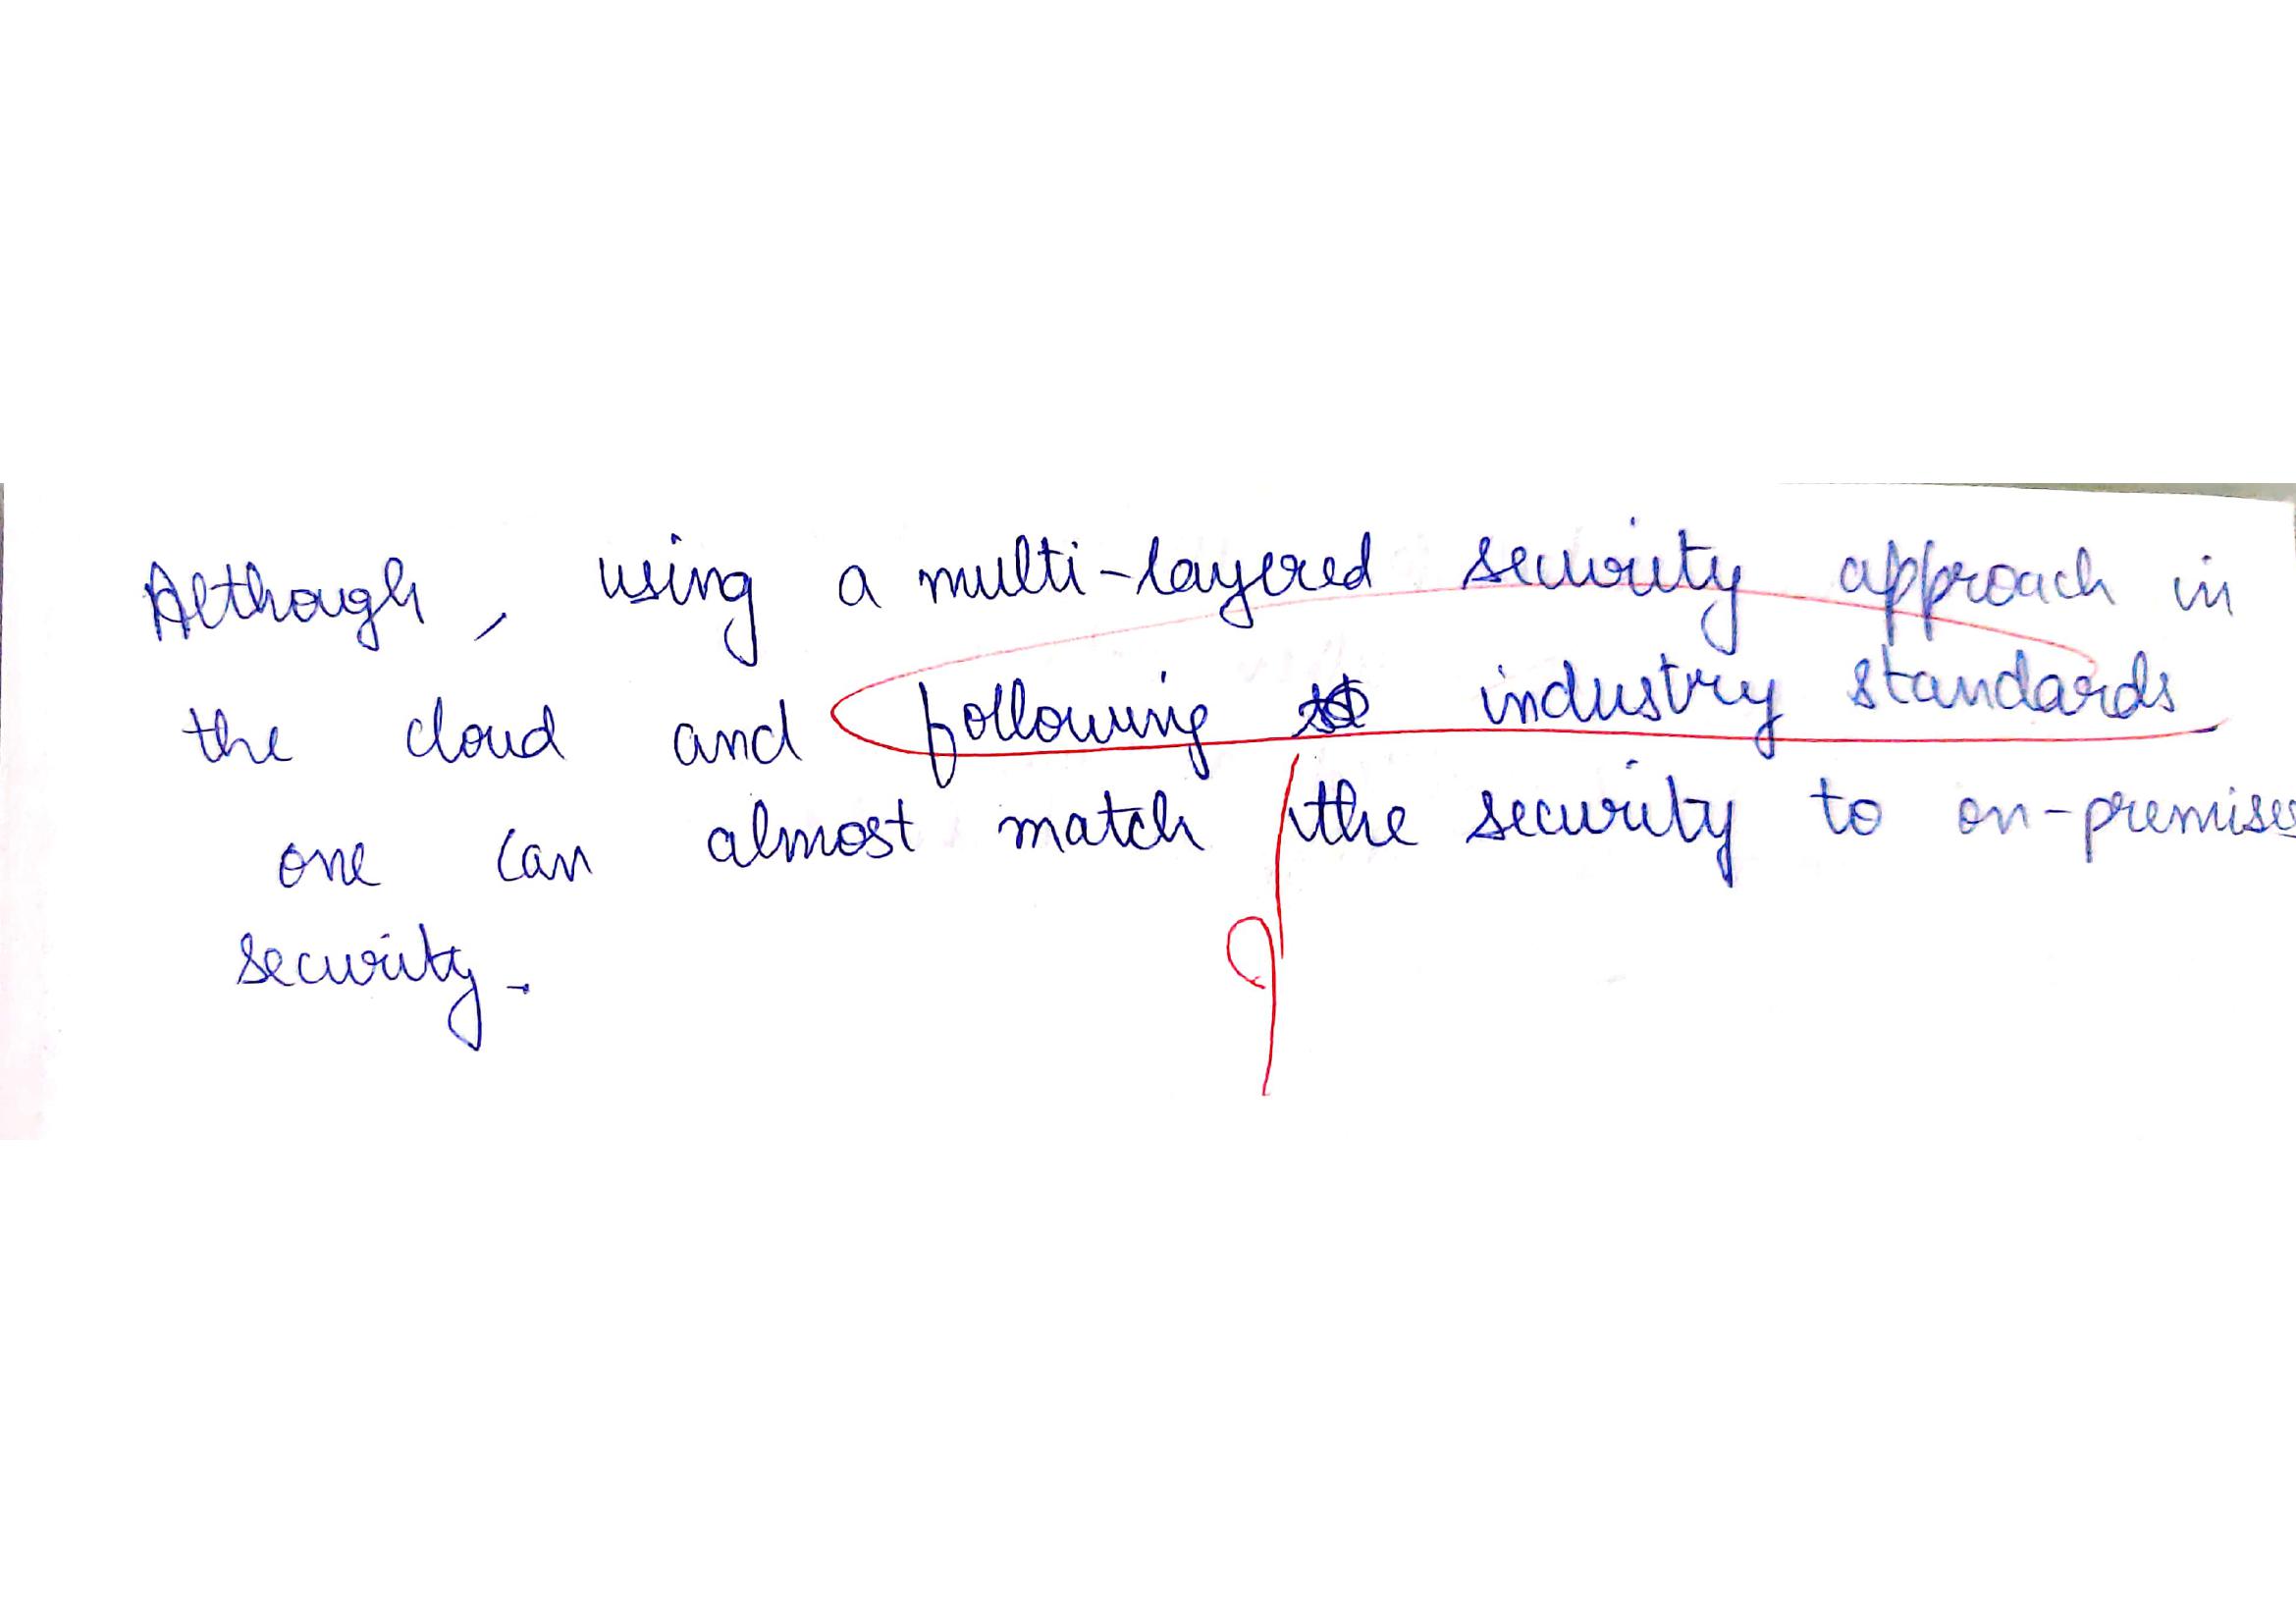 Although, using a multi-layered security approach in
the cloud and following industry standards
one can almost match the security to on-premises
security.